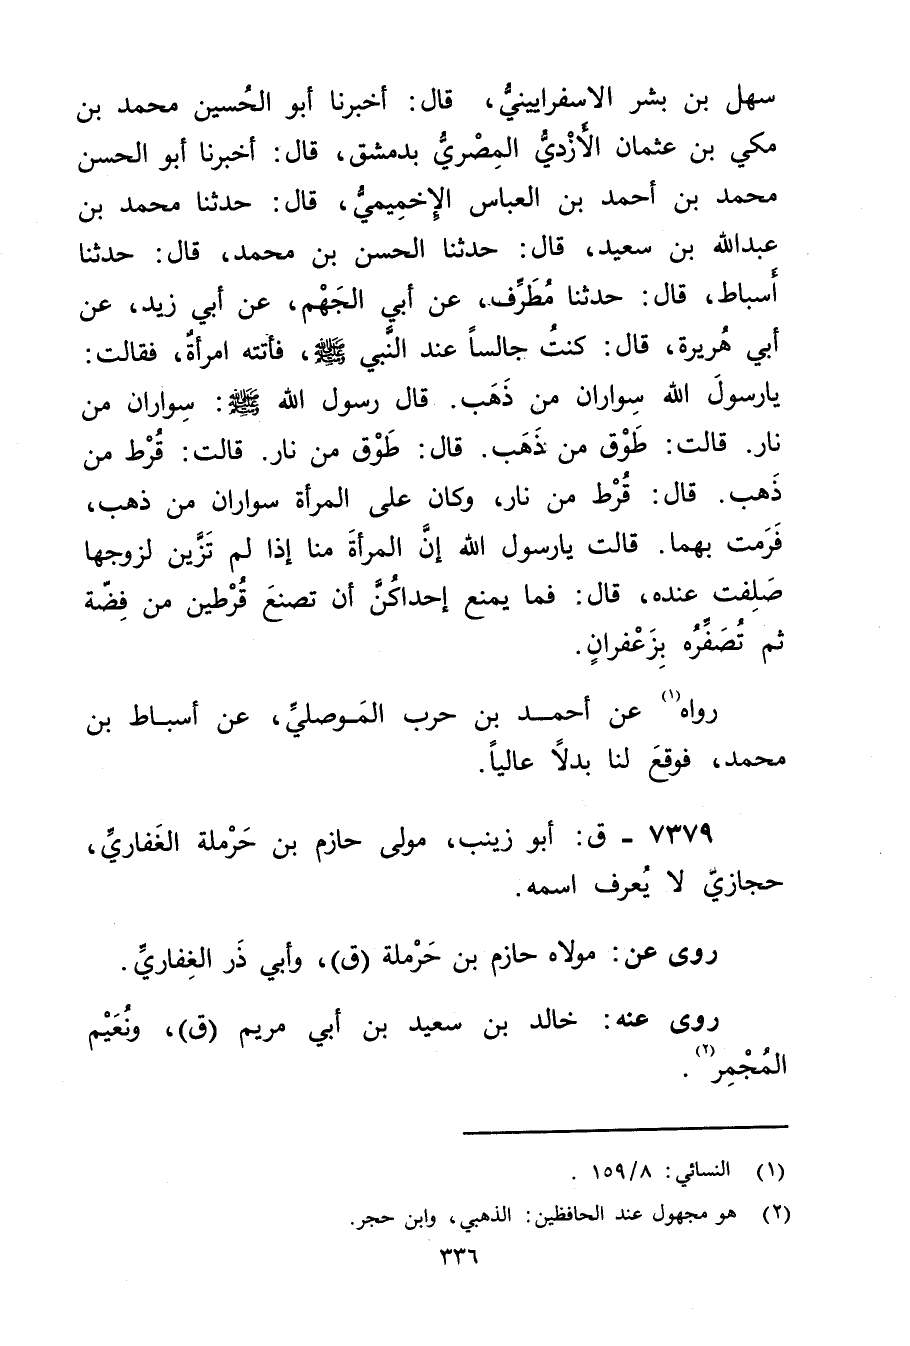 سهل بن بشر الاسفرايينيُّ، قال: أخبرنا أبو الحُسين محمد بن
مكي بن عثمان الأَزْديُّ المِصْريُّ بدمشق، قال: أخبرنا أبو الحسن
محمد بن أحمد بن العباس الإِخميميُّ، قال: حدثنا محمد بن
عبدالله بن سعيد، قال: حدثنا الحسن بن محمد، قال: حدثنا
أَسباط، قال: حدثنا مُطَرِّف، عن أبي الجَهْم، عن أبي زيد، عن
أبي هُريرة، قال: كنتُ جالساً عند النَّبي ﷺ، فأتته امرأةٌ، فقالت:
يارسولَ الله سِواران من ذَهَب. قال رسول الله ﷺ: سِواران من
نار. قالت: طَوْق من ذَهَب. قال: طَوْق من نار. قالت: قُرْط من
ذَهب. قال: قُرْط من نار، وكان على المرأة سواران من ذهب،
فَرَمت بهما. قالت يارسول الله إنَّ المرأةَ منا إذا لم تَزَّين لزوجها
صَلِفت عنده، قال: فما يمنع إحداكُنَّ أن تصنعَ قُرْطين من فِضّة
ثم تُصَفِّرُه بِزَعْفرانٍ.
رواه(١) عن أحمد بن حرب المَوصليِّ، عن أسباط بن
محمد، فوقعَ لنا بدلًا عالياً.
٧٣٧٩ ـ ق: أبو زينب، مولى حازم بن حَرْملة الغَفاريِّ،
حجازيّ لا يُعرف اسمه.
روى عن: مولاه حازم بن حَرْملة (ق)، وأبي ذَر الغِفاريِّ.
روى عنه: خالد بن سعيد بن أبي مريم (ق)، ونُعَيْم
المُجْمِر(٢).
(١) النسائي: ٨/١٥٩ .
(٢) هو مجهول عند الحافظين: الذهبي، وابن حجر.
٣٣٦